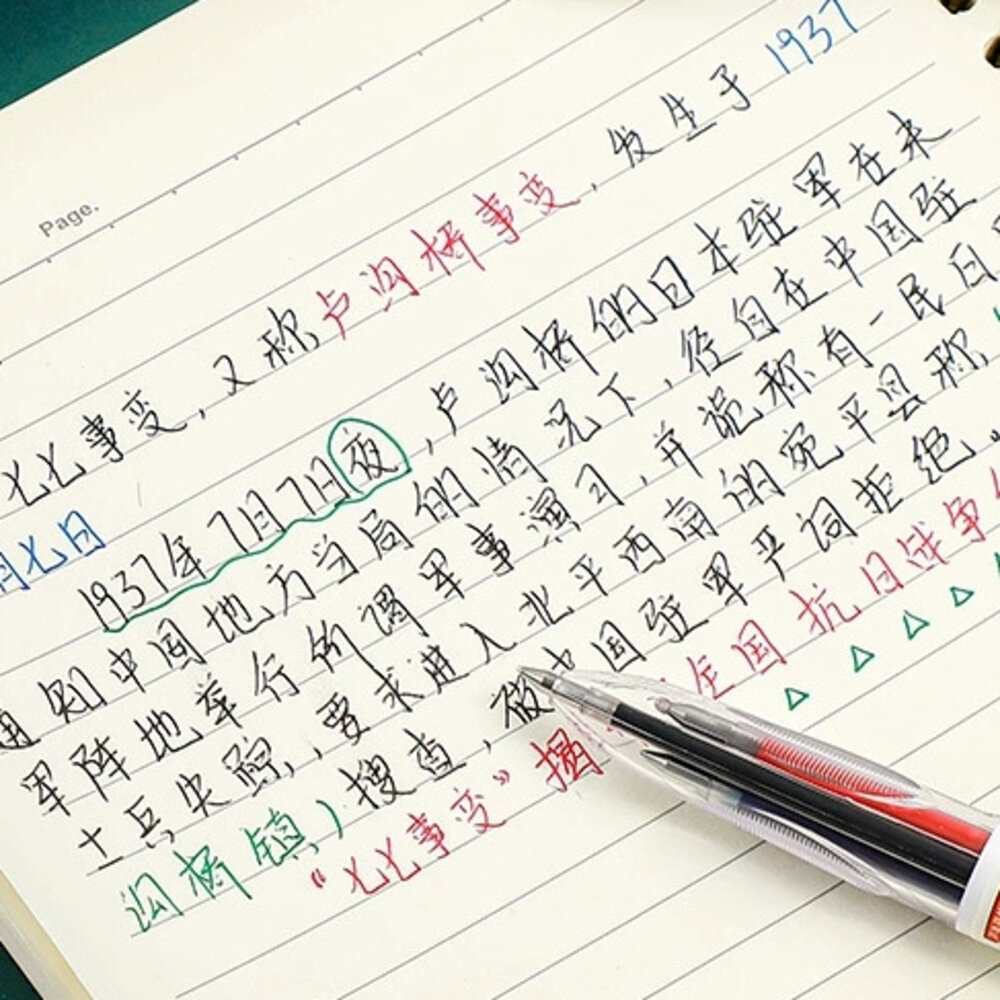 Page.
七七事变，又称卢沟桥事变，发生于1937
月七日
1937年7月7日夜，卢沟桥的日本驻军在未
通知中国地方当局的情况下，径自在中国驻
军阵地举行所谓军事演习，并诡称有一民日
士兵失踪，要求进入北平西南的宛平县称
沟桥镇）搜查，被中国驻军严词拒绝。
“七七事变”揭 全国抗日战争